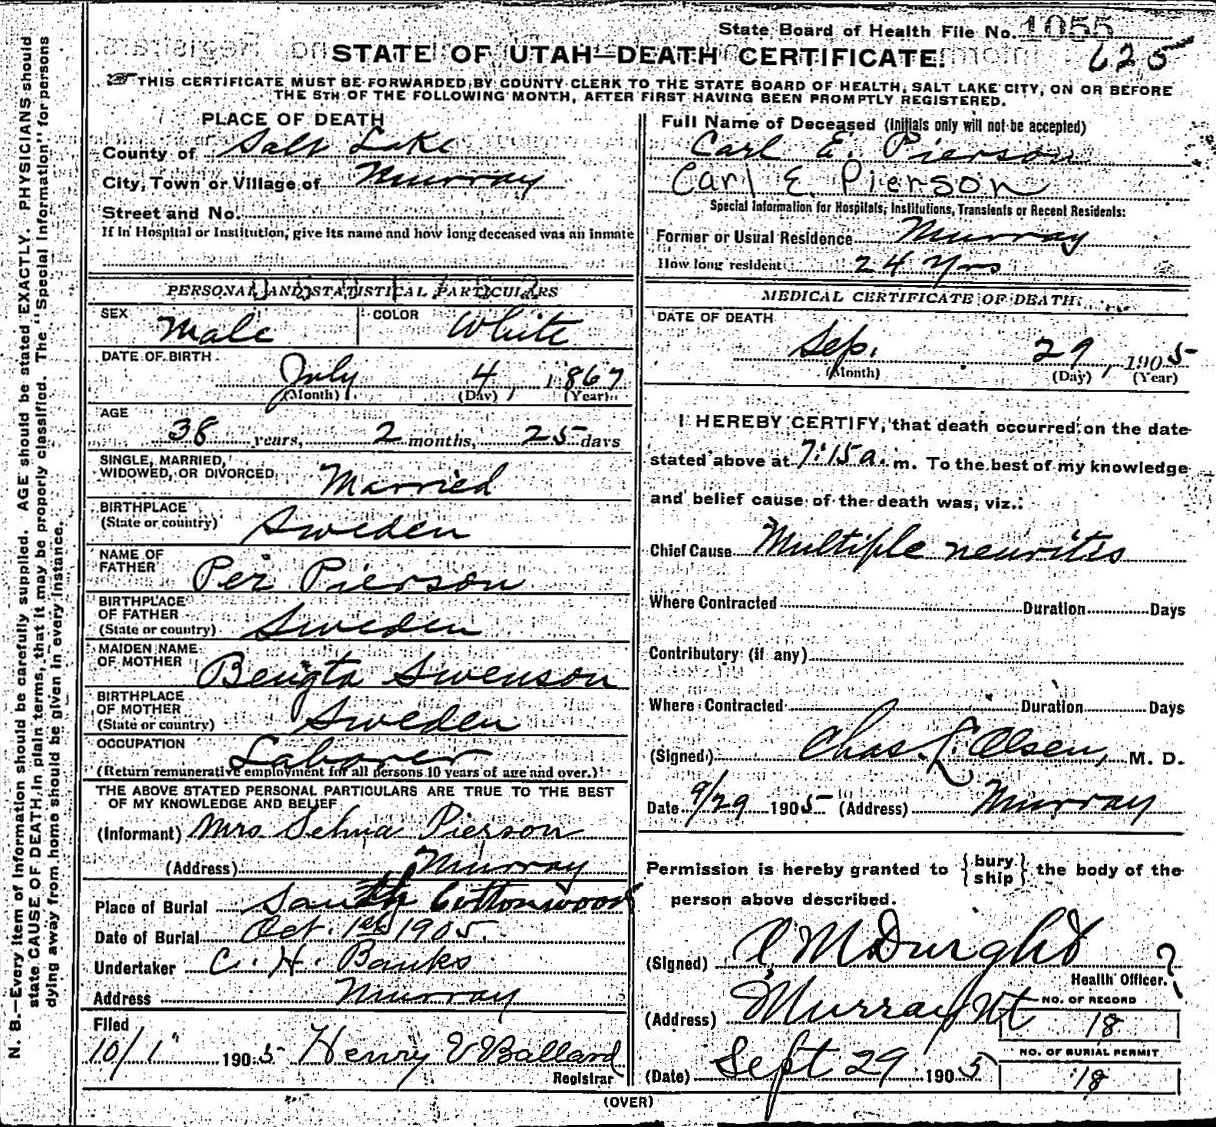 State Board of Health File No. 1055
625
STATE OF UTAH—DEATH CERTIFICATE.
THIS CERTIFICATE MUST BE FORWARDED BY COUNTY CLERK TO THE STATE BOARD OF HEALTH, SALT LAKE CITY, ON OR BEFORE
THE 5TH OF THE FOLLOWING MONTH, AFTER FIRST HAVING BEEN PROMPTLY REGISTERED.
PLACE OF DEATH
County of Salt Lake
City, Town or Village of Murray
Street and No.
If in Hospital or Institution, give its name and how long deceased was an inmate
PERSONAL AND STATISTICAL PARTICULARS
SEX Male COLOR White
DATE OF BIRTH
July 4, 1867
(Month) (Day) (Year)
AGE
38 years, 2 months, 25 days
SINGLE, MARRIED,
WIDOWED, OR DIVORCED Married
BIRTHPLACE
(State or country) Sweden
NAME OF
FATHER Per Pierson
BIRTHPLACE
OF FATHER
(State or country) Sweden
MAIDEN NAME
OF MOTHER Bengta Swenson
BIRTHPLACE
OF MOTHER
(State or country) Sweden
OCCUPATION Laborer
(Return remunerative employment for all persons 10 years of age and over.)
THE ABOVE STATED PERSONAL PARTICULARS ARE TRUE TO THE BEST
OF MY KNOWLEDGE AND BELIEF
(Informant) Mrs Selma Pierson
(Address) Murray
Place of Burial South Cottonwood
Date of Burial Oct. 1st 1905.
Undertaker C. H. Banks
Address Murray
Filed
10/1 1905 Henry V Ballard
Registrar
Full Name of Deceased (Initials only will not be accepted)
Carl E. Pierson
Carl E Pierson
Special Information for Hospitals, Institutions, Transients or Recent Residents:
Former or Usual Residence Murray
How long resident 24 yrs
MEDICAL CERTIFICATE OF DEATH.
DATE OF DEATH
Sep. 29, 1905
(Month) (Day) (Year)
I HEREBY CERTIFY, that death occurred on the date
stated above at 7:15 a. m. To the best of my knowledge
and belief cause of the death was, viz.:
Chief Cause Multiple neuritis
Where Contracted Duration Days
Contributory (if any)
Where Contracted Duration Days
(Signed) Chas L. Olsen, M. D.
Date 9/29 1905 (Address) Murray
Permission is hereby granted to {bury
ship} the body of the
person above described.
(Signed) M Dwight ?
Health Officer.
(Address) Murray Ut
NO. OF RECORD
18
(Date) Sept 29 1905
NO. OF BURIAL PERMIT
18
(OVER)
N. B.—Every item of information should be carefully supplied. AGE should be stated EXACTLY. PHYSICIANS should
state CAUSE OF DEATH in plain terms, that it may be properly classified. The "Special Information" for persons
dying away from home should be given in every instance.